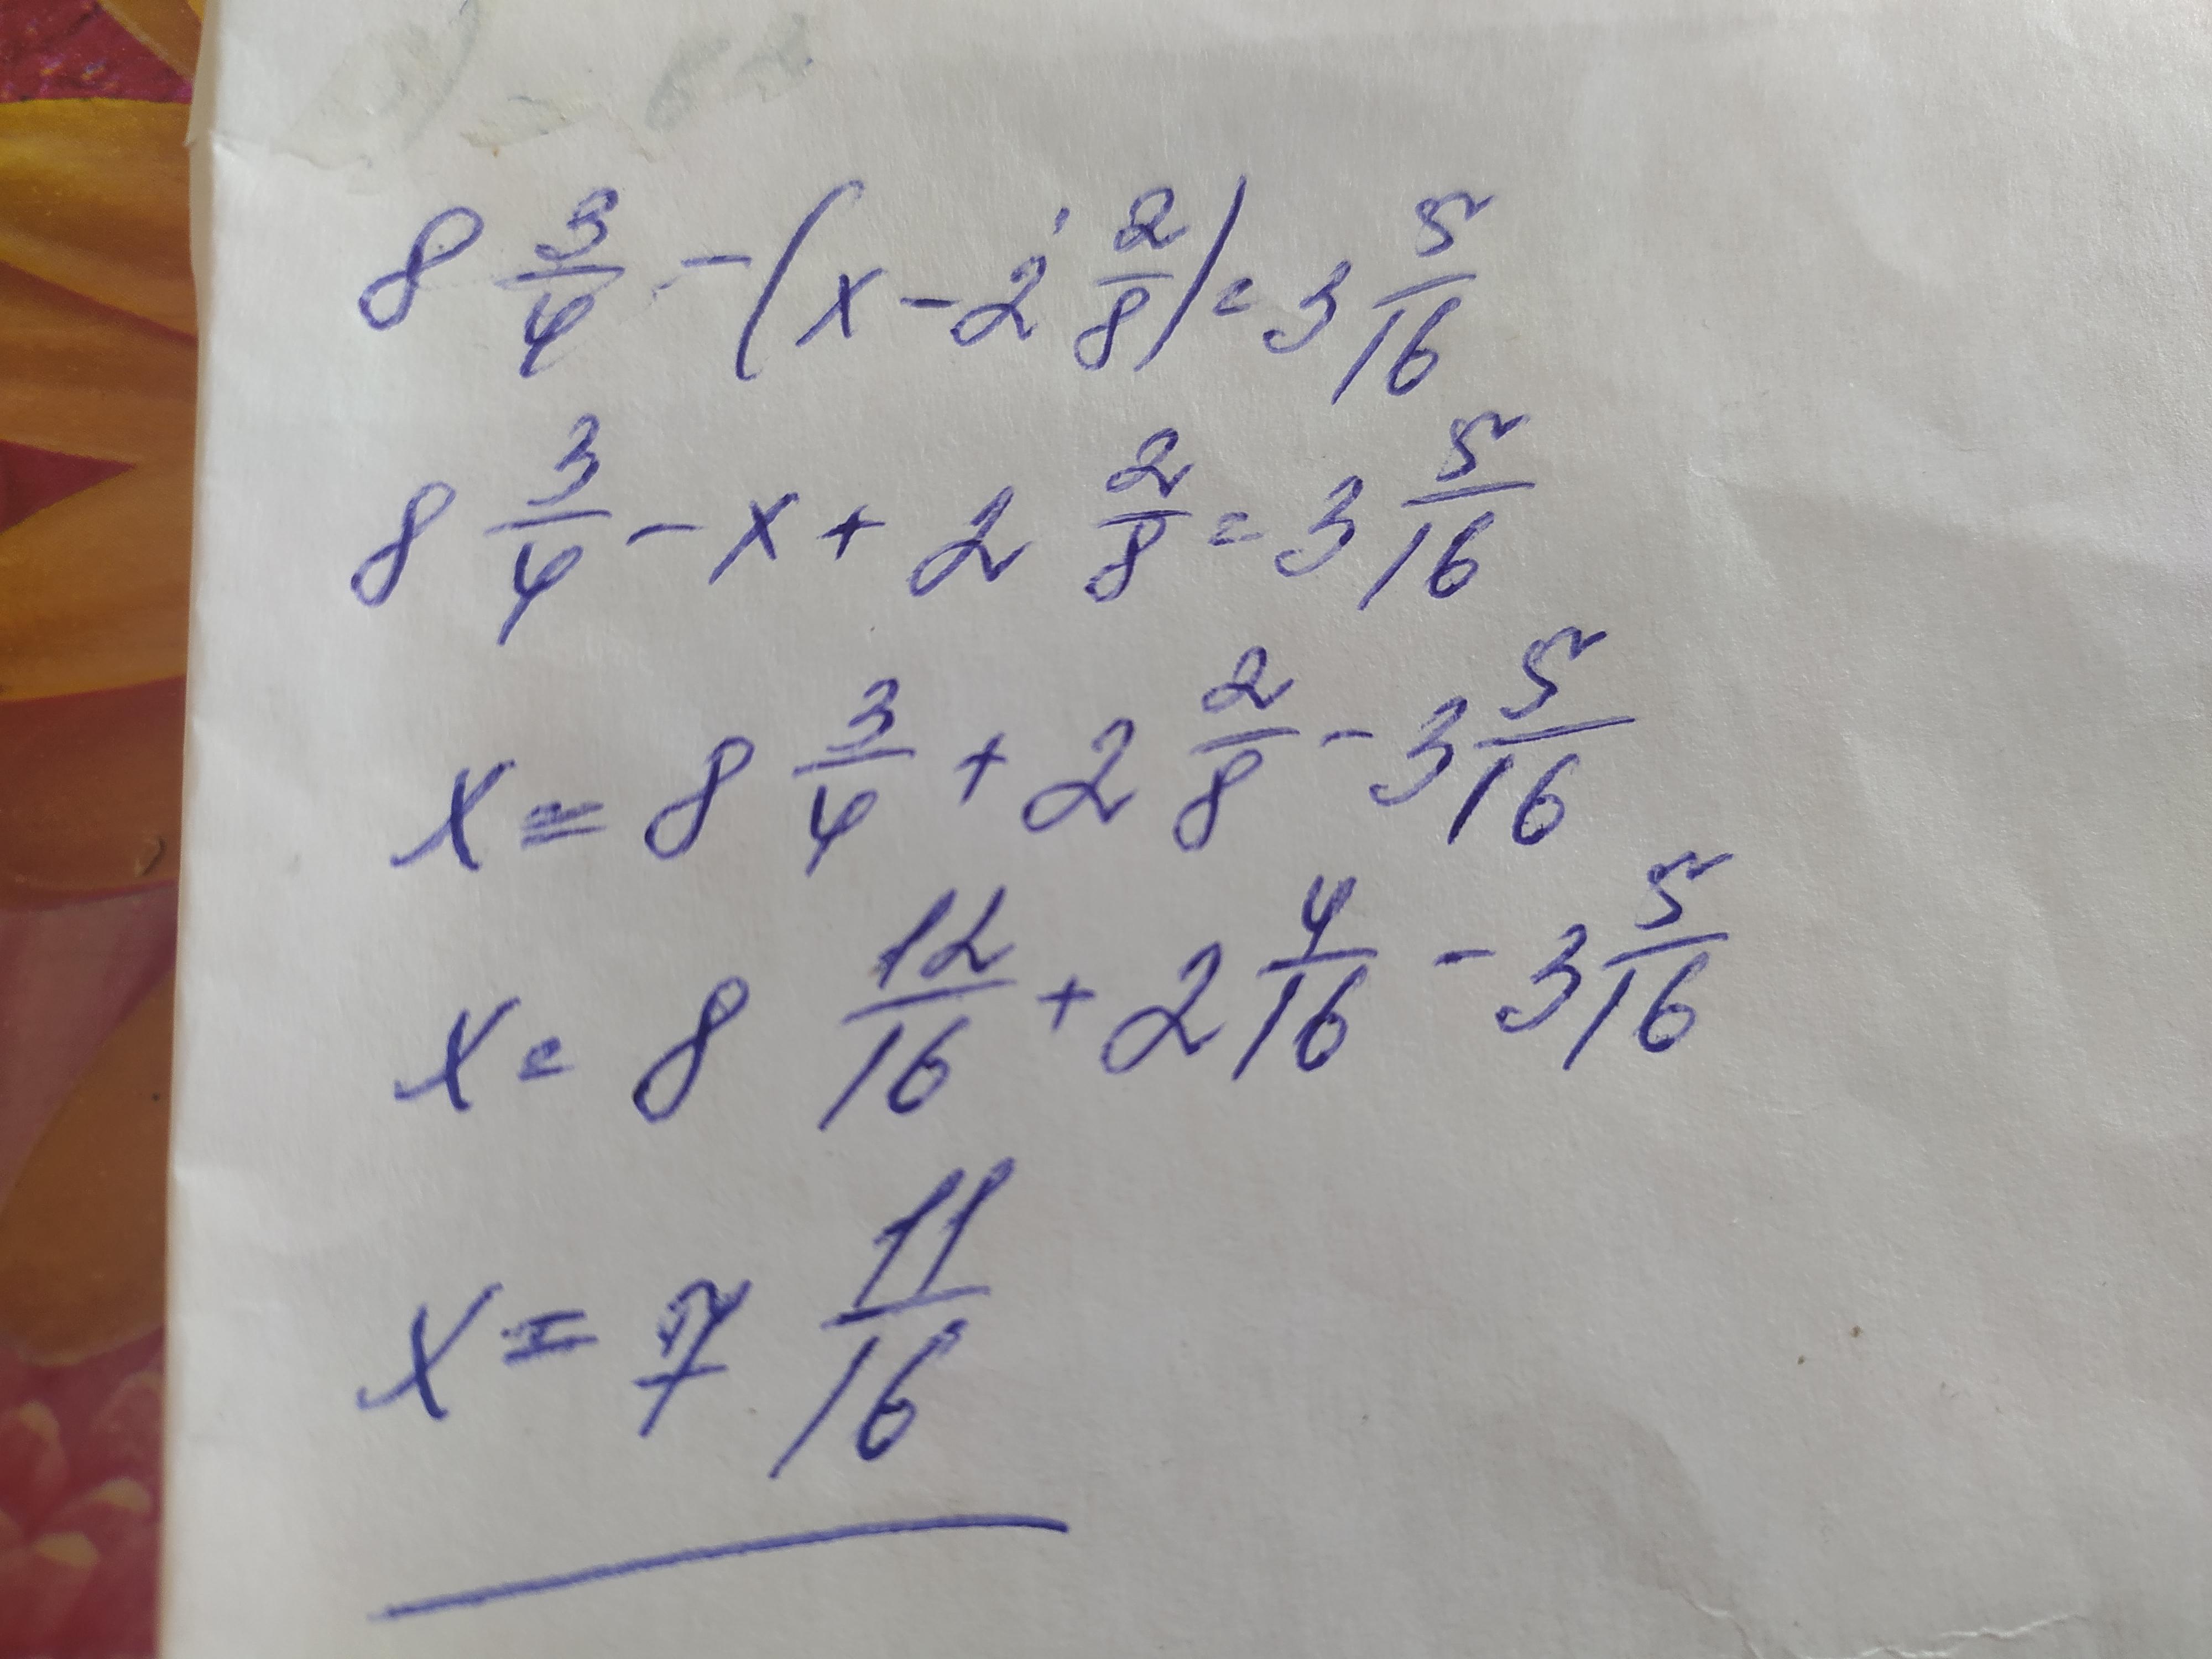 8 3/4 - (x - 2 2/8) = 3 5/16
8 3/4 - x + 2 2/8 = 3 5/16
x = 8 3/4 + 2 2/8 - 3 5/16
x = 8 12/16 + 2 4/16 - 3 5/16
x = 7 11/16